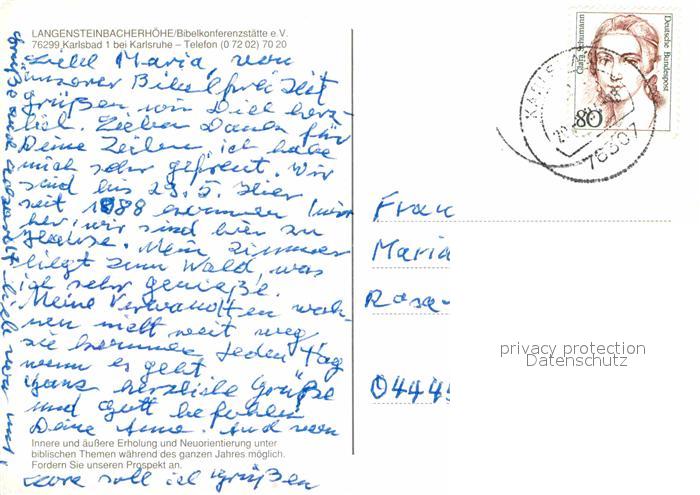 LANGENSTEINBACHERHÖHE/Bibelkonferenzstätte e.V.
76299 Karlsbad 1 bei Karlsruhe – Telefon (0 72 02) 70 20
Liebe Maria, von
unserer Bibelfreizeit
grüßen wir Dich herz-
lich. Lieben Dank für
Deine Zeilen, ich habe
mich sehr gefreut. Wir
sind bis 23.5. hier
seit 1988 kommen wir
her, wir sind hier zu
Hause. Mein Zimmer
liegt zum Wald, was
ich sehr genieße.
Meine Verwandten woh-
nen nicht weit weg,
sie kommen jeden Tag
wenn es geht
Ganz herzliche Grüße
und Gott befohlen
Deine Anne. Auch von
soll ich grüßen
Innere und äußere Erholung und Neuorientierung unter
biblischen Themen während des ganzen Jahres möglich.
Fordern Sie unseren Prospekt an.
Clara Schumann
Deutsche Bundespost
80
76307
Frau
Maria
Rosa-
04445
privacy protection
Datenschutz